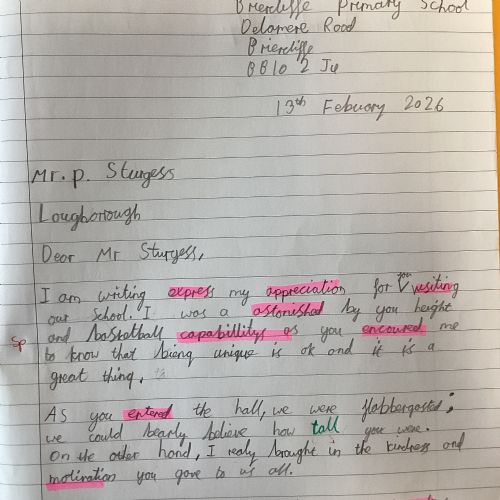 Briercliffe Primary School
Delamere Road
Briercliffe
BB10 2 Ju
13th Febuary 2026
Mr. p. Sturgess
Loughborough
Dear Mr Sturgess,
I am writing express my appreciation for you visiting
our school. I was a astonished by you height
Sp and basketball capabillitys as you encoured me
to know that bieng unique is ok and it is a
great thing.
As you entered the hall, we were flabbergasted;
we could bearly believe how tall you were.
On the other hand, I realy brought in the kindness and
motivation you gave to us all.